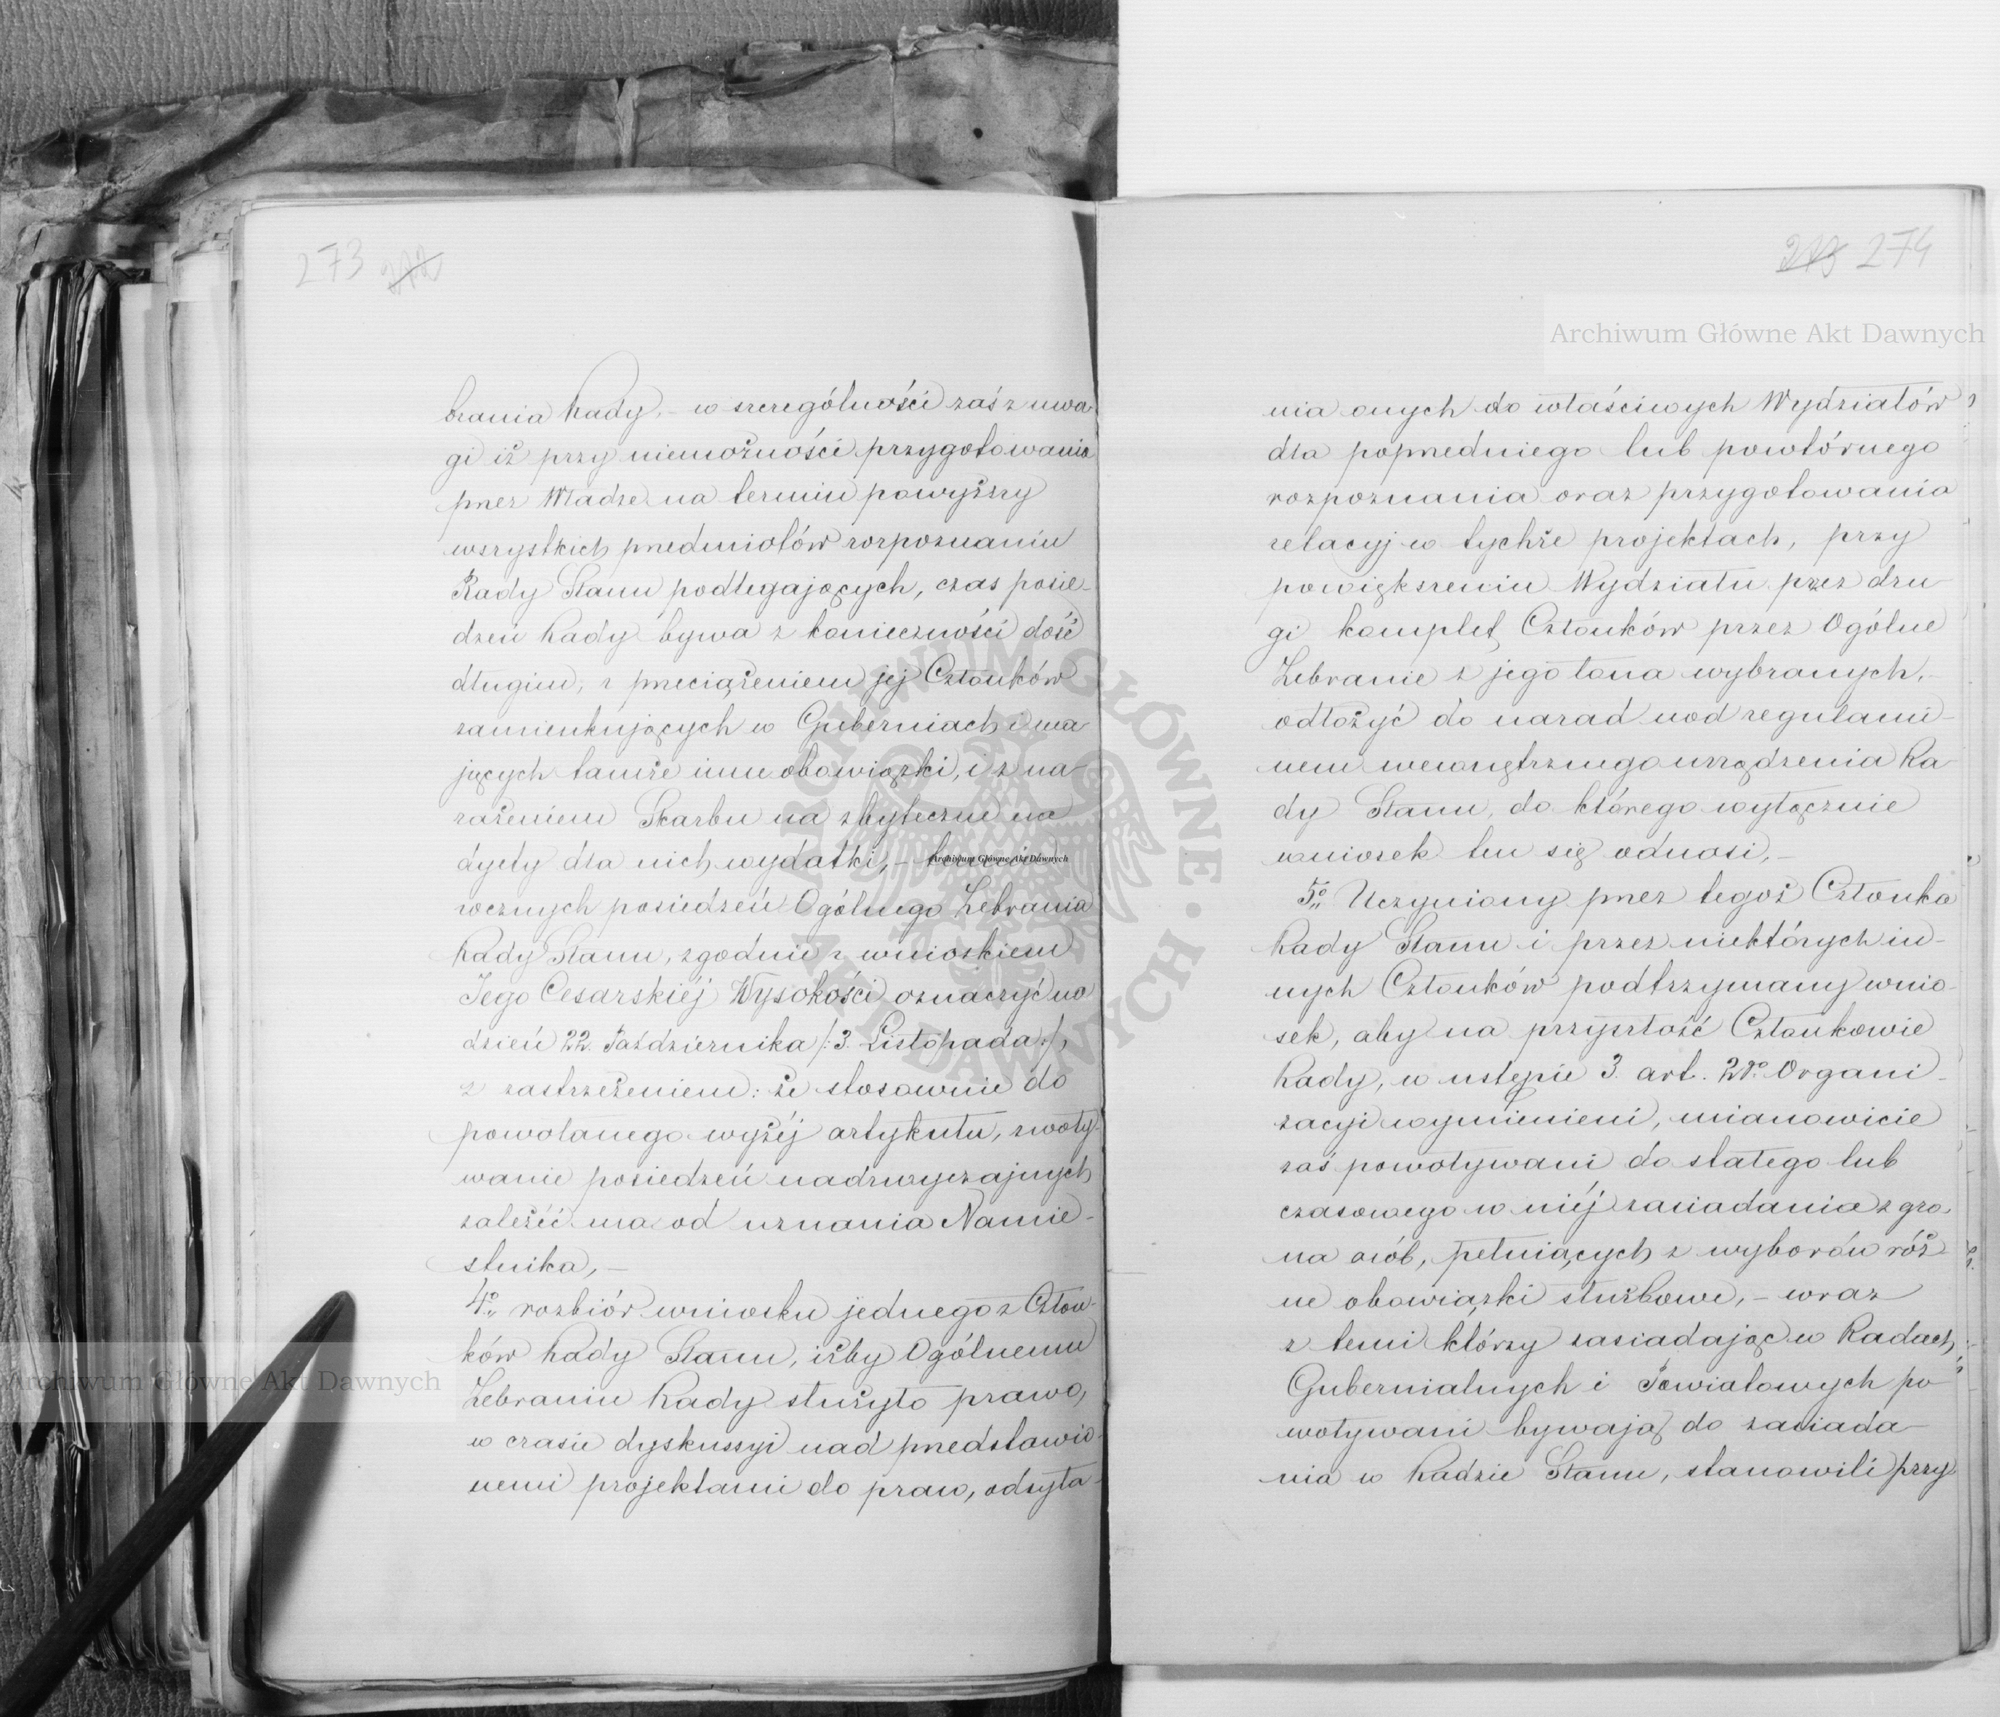 273 272
brania Rady, – w szczególności zaś z uwa-
gi iż przy niemożności przygotowania
przez Władze na termin powyższy
wszystkich przedmiotów rozpoznaniu
Rady Stanu podlegających, czas posie-
dzeń Rady bywa z konieczności dość
długim, z przeciążeniem jej Członków
zamieszkujących w Guberniach i ma-
jących tamże inne obowiązki, i z na-
rażeniem Skarbu na zbyteczne na
dyety dla nich wydatki, –
rocznych posiedzeń Ogólnego Zebrania
Rady Stanu, zgodnie z wnioskiem
Jego Cesarskiéj Wysokości oznaczyć na
dzień 22. Października /:3. Listopada:/,
z zastrzeżeniem: że stosownie do
powołanego wyżéj artykułu, zwoły-
wanie posiedzeń nadzwyczajnych
zależéć ma od uznania Namie-
stnika, –
4º rozbiór wniosku jednego z Człon-
ków Rady Stanu, iżby Ogólnemu
Zebraniu Rady służyło prawo,
w czasie dyskussyi nad przedstawio-
nemi projektami do praw, odsyła-
213 274
nia onych do właściwych Wydziałów
dla poprzedniego lub powtórnego
rozpoznania oraz przygotowania
relacyj w tychże projektach, przy
powiększeniu Wydziału przez dru-
gi komplet Członków przez Ogólne
Zebranie z jego łona wybranych, –
odłożyć do narad nad regulami-
nem wewnętrznego urządzenia Ra-
dy Stanu, do którego wyłącznie
wniosek ten się odnosi, –
5º Uczyniony przez tegoż Członka
Rady Stanu i przez niektórych in-
nych Członków podtrzymany wnio-
sek, aby na przyszłość Członkowie
Rady, w ustępie 3. art. 21º Organi-
zacyi wymienieni, mianowicie
zaś powoływani do stałego lub
czasowego w niéj zasiadania z gro-
na osób, pełniących z wyborów róż-
ne obowiązki służbowe, – wraz
z temi którzy zasiadając w Radach
Gubernialnych i Powiatowych po-
woływani bywają do zasiada-
nia w Radzie Stanu, stanowili przy
Archiwum Główne Akt Dawnych
Archiwum Główne Akt Dawnych
Archiwum Główne Akt Dawnych
ARCHIWUM GŁÓWNE AKT DAWNYCH